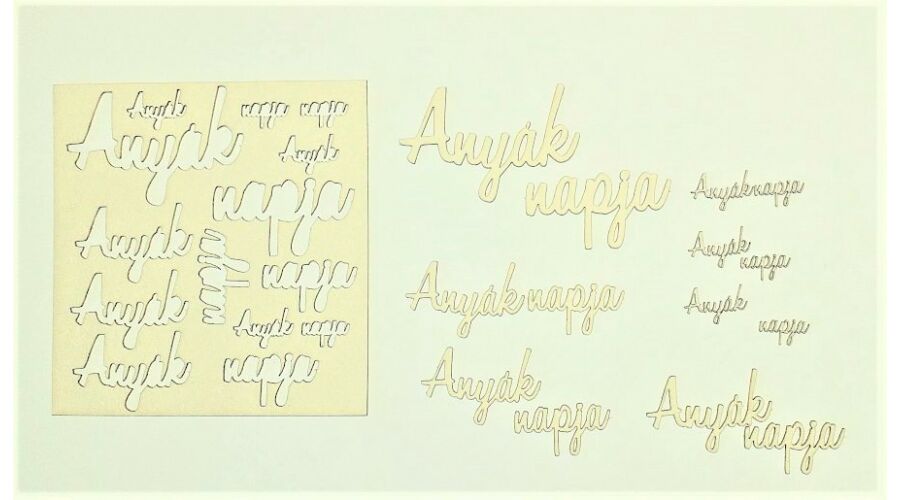 Anyák napja napja
Anyák
Anyák
napja
Anyák
napja
napja
Anyák
Anyák napja
Anyák
napja
Anyák
napja
Anyák napja
Anyák
napja
Anyák
napja
Anyák napja
Anyák
napja
Anyák
napja